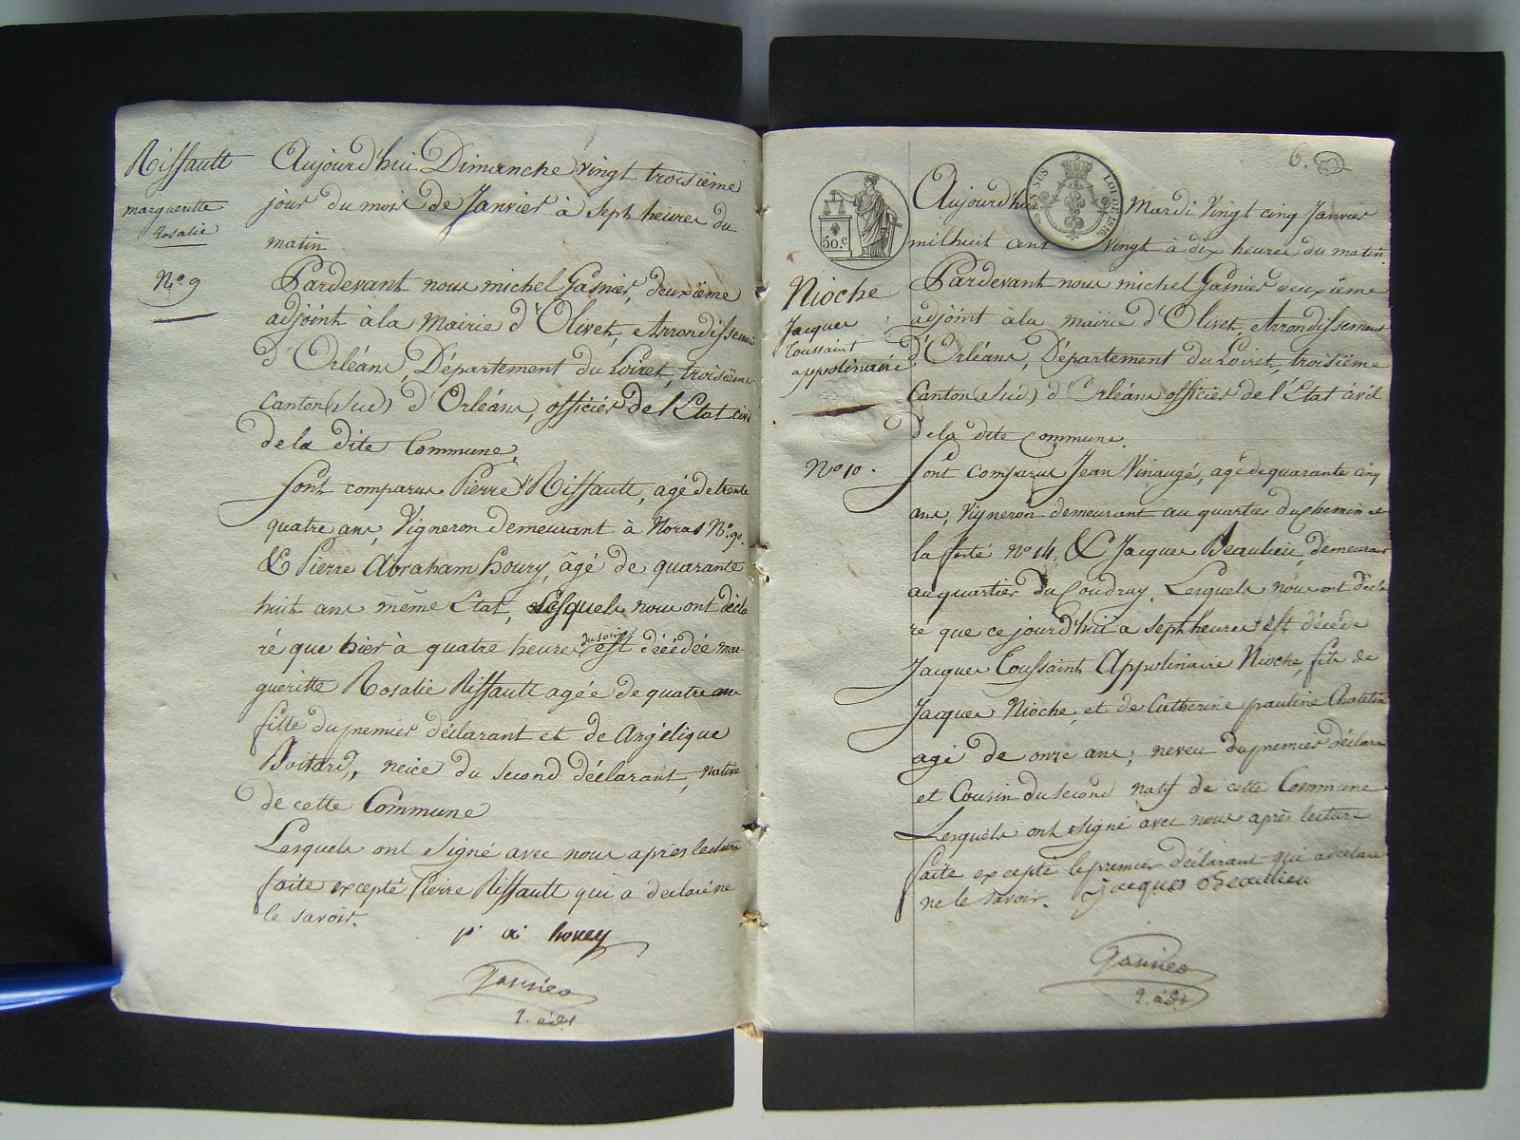 Riffault
margueritte
Rosalie
N.º 9
Aujourd'hui Dimanche vingt troisième
jour du mois de Janvier à Sept heures du
matin
Pardevant nous michel Gasnier, deuxième
adjoint à la Mairie d'Olivet, Arrondissement
d'Orléans, Département du Loiret, troisième
Canton (Sud) d'Orléans, officier de l'Etat civil
de la dite Commune.
Sont comparus Pierre Riffault, agé de trente
quatre ans, Vigneron demeurant à Noras N.º 90.
& Pierre Abraham houry, âgé de quarante
huit ans même Etat, Lesquels nous ont décla
ré que hier à quatre heures du soir est décédée mar
gueritte Rosalie Riffault agée de quatre ans
fille du premier déclarant et de Angélique
Boitard, neice du second déclarant, native
de cette Commune
Lesquels ont signé avec nous après lecture
faite excepté Pierre Riffault qui a declaré ne
le savoir.
p. a houry
Gasnier
2. adt
6.
50.c
Nioche
Jacques
Toussaint
appolinaire
Nº 10.
Aujourd'hui Mardi Vingt cinq Janvier
mil huit cent vingt à dix heures du matin
Pardevant nous michel Gasnier deuxième
adjoint à la mairie d'Olivet, Arrondissement
d'Orléans, Département du Loiret, troisième
Canton (Sud) d'Orléans officier de l'Etat civil
de la dite Commune.
Sont comparus Jean Vinaugé, agé de quarante cinq
ans, Vigneron demeurant au quartier du chemin de
la ferté nº 14, & Jacques Beaulieu, demeurant
au quartier du Coudray. Lesquels nous ont décla
ré que ce jourd'hui a Sept heures est décédé
Jacques Toussaint Appolinaire Nioche, fils de
Jacques Nioche, et de Catherine pauline
agé de onze ans; neveu du premier déclarant
et Cousin du second natif de cette Commune
Lesquels ont signé avec nous après lecture
faite excepté le premier déclarant qui a declaré
ne le savoir. Jacques Beaulieu
Gasnier
2. adt